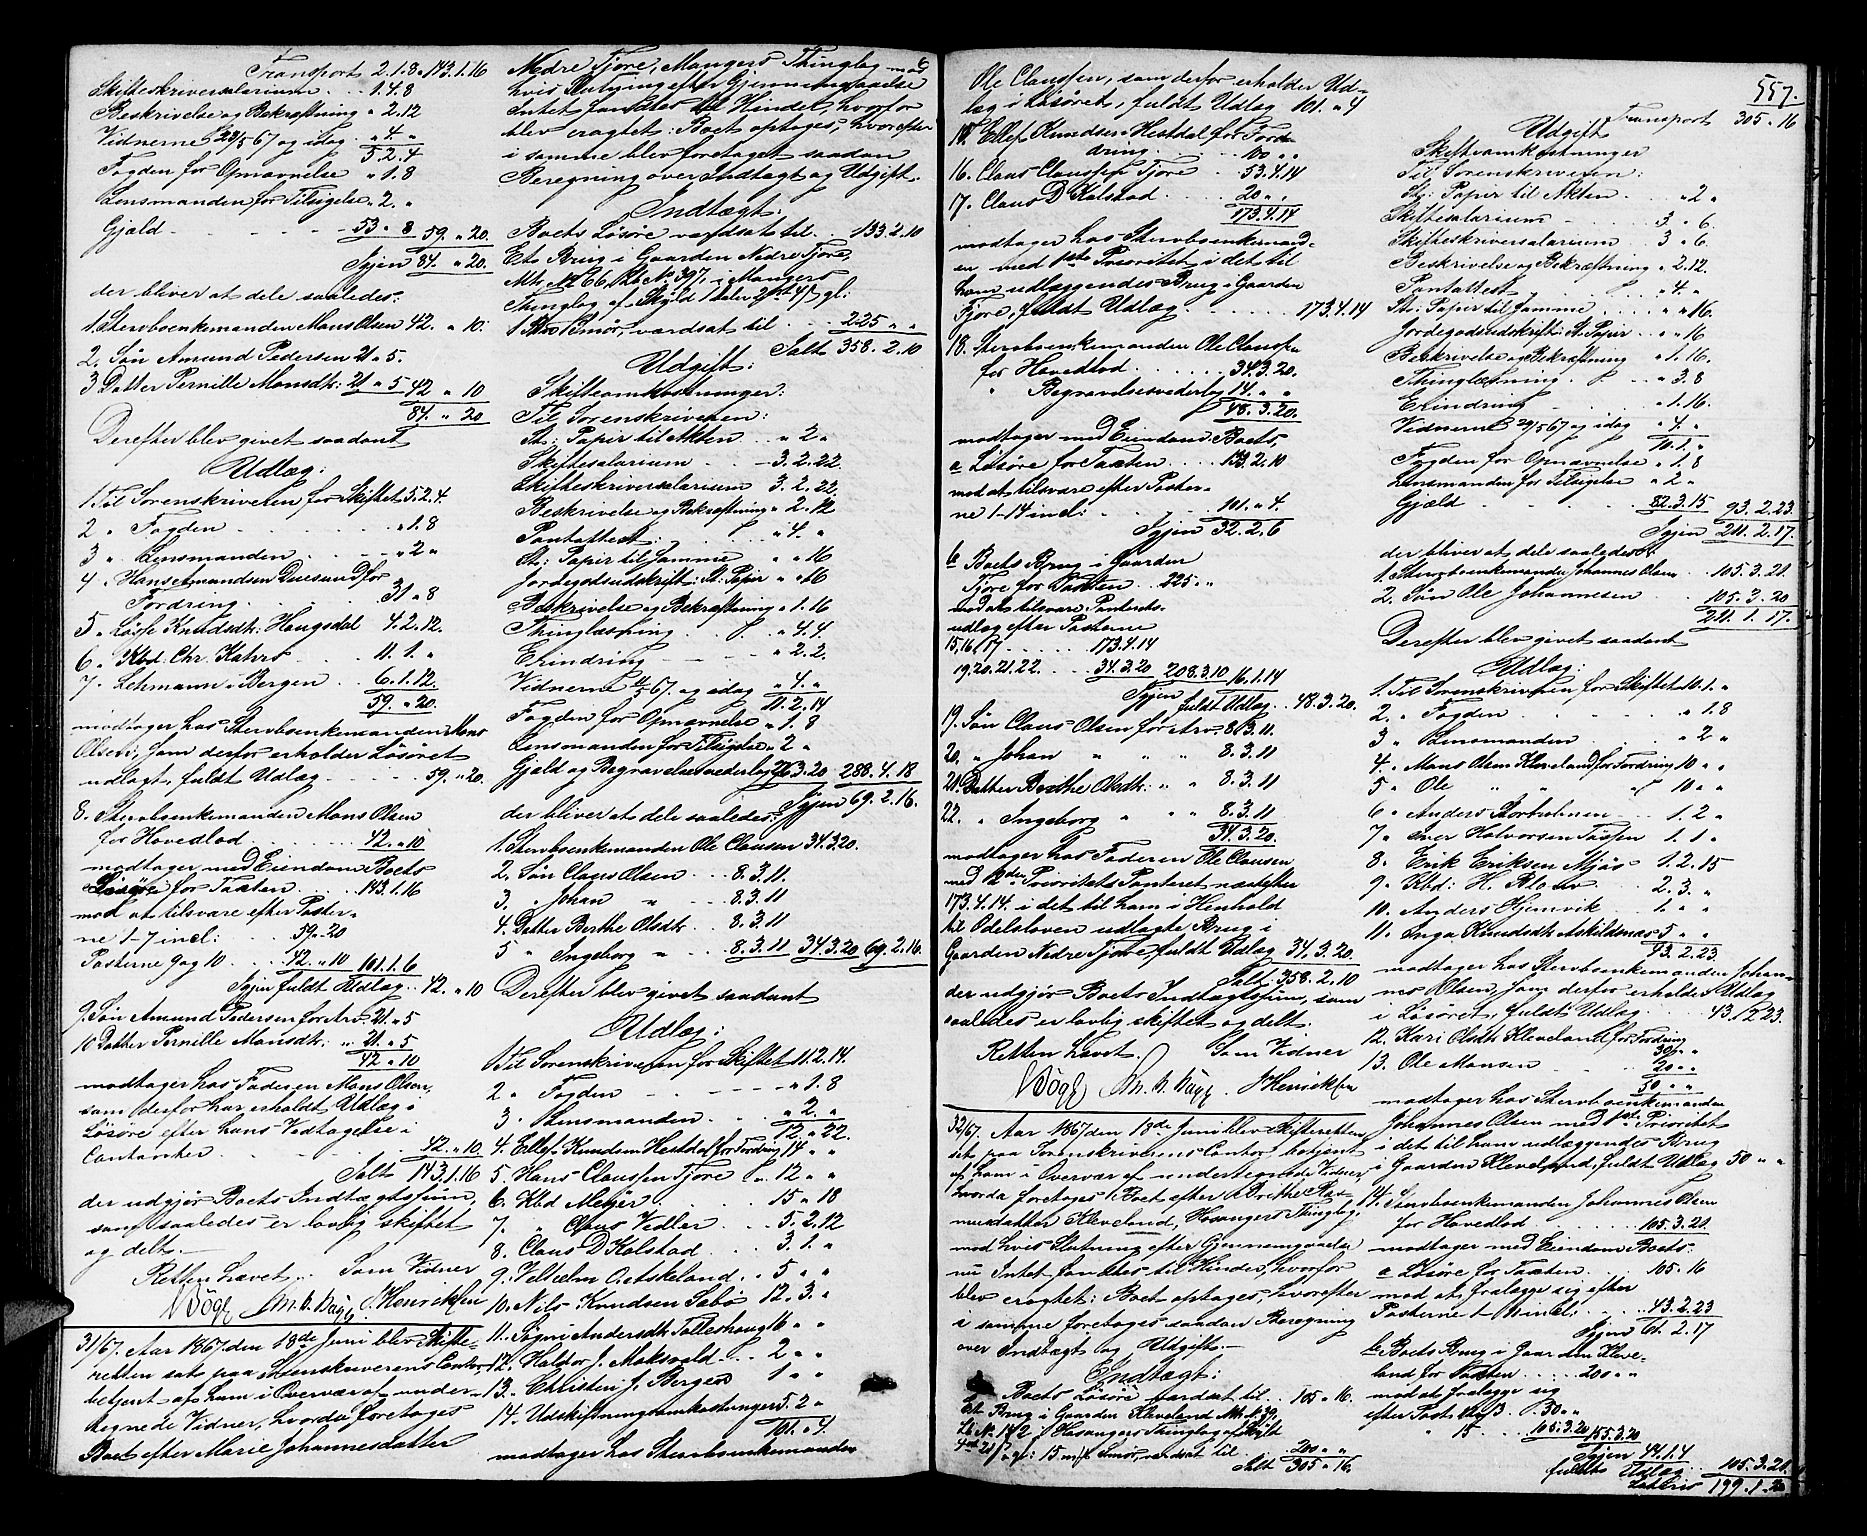 Transport 2.1.8. 143.1.16
Skifteskriversalarium . . 1.4.8
Beskrivelse og Bekræftning " 2.12
Vidnerne 29/5 67 og idag " 4 "
5 2.4
Fogden for Opnævnelse " 1.8
Lensmanden for Tilsigelse " 2. "
Gjæld 53 " 8 59. " 20.
Igjen 84. " 20.
der bliver at dele saaledes:
1. Stervboenkemanden Mons Olsen 42. " 10.
2. Søn Amund Pedersen 21 " 5.
3 Datter Pernille Monsdtr: 21 " 5 42 " 10
84. " 20
Derefter blev givet saadant
Udlæg:
1. Til Sorenskriveren for Skiftet 5.2.4.
2 " Fogden " 1.8
3 " Lensmanden " 2 "
4 " Hans Amundsen Duesund for
Fordring 31 " 8
5 " Losse Knudsdtr: Haugsdal 4.2.12.
6 " Kbd. Chr. Kahrs 11. 1. "
7 " Lehmann i Bergen 6.1.12.
59. " 20.
modtager hos Stervboenkemanden Mons
Olsen, som derfor erholder Løsøret
udlagt, fuldt Udlæg 59. " 20.
8. Stervboenkemanden Mons Olsen
for Hovedlod 42. " 10
modtager med Eiendom Boets
Løsøre for Taxten 143.1.16
mod at tilsvare efter Poster-
ne 1-7 incl: 59. " 20
Posterne 9 og 10 42. " 10 101.1.6
Igjen fuldt Udlæg 42. " 10
9. Søn Amund Pedersen for Arv 21. " 5
10 Datter Pernille Monsdtr: " 21. " 5
42 " 10
modtager hos Faderen Mons Olsen,
som derfor har erholdt Udlæg i
Løsøre efter hans Vedtagelse i
Contanter 42. " 10
Salt 143.1.16
der udgjør Boets Indtægtssum,
som saaledes er lovlig skiftet
og delt.
Retten hævet. Som Vidner
Bøgh M. B. Bagge J. Henriksen
31/67. Aar 1867 den 18de Juni blev Skifte-
retten sat paa Sorenskriverens Contor,
betjent af ham i Overvær af under-
tegnede Vidner, hvorda foretoges
Boet efter Marie Johannesdatter
Nedre Fjore, Mangers Thinglag mod
hvis Slutning efter Gjennemgaaelse
Intet fandtes til Hinder, hvorfor
blev eragtet: Boet optages, hvorefter
i samme blev foretaget saadan
Beregning over Indtægt og Udgift.
Indtægt:
Boets Løsøre værdsat til 133.2.10
Et Brug i Gaarden Nedre Fjore,
Thinglag af Skyld
1 Smør, værdsat til 225 " "
Salt 358.2.10
Udgift:
Skifteomkostninger:
Til Sorenskriveren:
St: Papir til Akten " 2 "
Skiftesalarium 3.2.22.
Skifteskriversalarium 3.2.22.
Beskrivelse og Bekræftning " 2.12
Pantattest " 4. "
St: Papir til Samme " " 16
Jordegodsudskrift: St: Papir " " 16
Beskrivelse og Bekræftning " 1.16
Thinglæsning " 4.4.
Erindring " 2.2.
Vidnerne 67, og idag " 4. "
11.2.14
Fogden for Opnævnelse " 1.8
Lensmanden for Tilsigelse " 2 "
Gjæld og Begravelsesvederlag 3.20 288.4.18
Igjen 69.2.16.
der bliver at dele saaledes:
1. Stervboenkemanden Ole Clausen 34.3.20.
2. Søn Claus Olsen 8.3.11.
3. " Johan " 8.3.11
4. Datter Berthe Olsdtr 8.3.11
5 " Ingeborg " 8.3.11 34.3.20 69.2.16.
Derefter blev givet saadant
Udlæg:
1 Til Sorenskriveren for Skiftet 11.2.14.
2 " Fogden " 1.8
3 " Lensmanden " 2. "
12 " 22.
4. Ellef Knudsen Hestdal for Fordring 14 " "
5. Hans Claussen Fjore 12 " "
6. Kbd Meijer 15 " 18
7. " Claus Vedler 5.2.12
8. Claus D Kolstad 3.1. "
9. Vilhelm O. Askeland 5 " "
10. Nils Knudsen Sæbø 12.3. "
11. Sigri Andersdtr Tolleshaug 6 " "
12. Haldor J. Moksvold 2 " "
13. Christen J. Bergen 1 " "
14. Udskiftningsomkostninger 5.2 "
101. " 4.
modtager hos Stervboenkemanden
Ole Claussen, som derfor erholder Ud-
læg i Løsøret, fuldt Udlæg 101. " 4
15. Ellef Knudsen Hestdal for Fordring
dring 100 " "
16. Claus Claussen Fjore 53.4.14
17. Claus D Kolstad 20 " "
173.4.14
modtager hos Stervboenkemand-
en med 1ste Prioritet i det til
ham udlæggendes Brug i Gaarden
Fjore, fuldt Udlæg 173.4.14
18. Stervboenkemanden Ole Clausen
for Hovedlod 34.3.20.
" Begravelsesvederlag 14. " "
48.3.20.
modtager med Eiendom Boets,
a Løsøre for Taxten 133.2.10
mod at tilsvare efter Poster-
ne 1-14 incl: 101. " 4.
Igjen 32.2.6
b Boets Brug i Gaarden
Fjore for Taxten 225 " "
mod at tilsvare Panterets-
udlæg efter Posterne
15, 16, 17 173.4.14
19. 20. 21. 22. 34.3.20 208.3.10 16.1.14
Igjen fuldt Udlæg 48.3.20.
19. Søn Claus Olsen for Arv 8.3.11.
20. " Johan " " 8.3.11
21. Datter Berthe Olsdtr. " " 8.3.11
22. " Ingeborg " " 8.3.11
34.3.20.
modtager hos Faderen Ole Clausen
med 2den Prioritets Panteret næstefter
173.4.14. i det til ham i Henhold
til Odelsloven udlagte Brug i
Gaarden Nedre Fjore, fuldt Udlæg 34.3.20.
Salt 358.2.10
der udgjør Boets Indtægtssum, som
saaledes er lovlig skiftet og delt.
Retten hævet. Som Vidner
Bøgh M. B. Bagge. J Henriksen
32/67. Aar 1867 den 18de Juni blev Skifteretten
sat paa Sorenskriverens Contor, betjent
af ham i Overvær af undertegnede Vidner,
hvorda foretoges Boet efter Brethe Ras-
musdatter Kleveland, Hosangers Thinglag,
mod hvis Slutning efter Gjennemgaaelse
nu Intet fandtes til Hinder, hvorfor
blev eragtet: Boet optages, hvorefter
i samme foretoges saadan Beregning
over Indtægt og Udgift.
Indtægt:
Boets Løsøre værdsat til 105 " 16.
Et Brug i Gaarden Kleveland M. N. 39,
Lb No 142 i Hosangers Thinglag af Skyld
15 Smør, værdsat til 200 " "
Salt 305 " 16.
557.
Transport 305 " 16
Udgift
Skifteomkostninger
Til Sorenskriveren:
St: Papir til Akten " 2 "
Skiftesalarium 3 " 6.
Skifteskriversalarium 3 " 6.
Beskrivelse og Bekræftning " 2.12.
Pantattest " 4. "
St: Papir til Samme " " 16.
Jordegodsudskrift: St. Papir " " 16
Beskrivelse og Bekræftning " 1.16.
Thinglæsning " 3.8
Erindring " 1.16.
Vidnerne 29/5 67 og idag " 4. "
10.1. "
Fogden for Opnævnelse " 1.8
Lensmanden for Tilsigelse " 2 "
Gjæld 82.3.15 93.2.23.
Igjen 211.2.17.
der bliver at dele saaledes:
1. Stervboenkemanden Johannes Olsen 105.3.21.
2. Søn Ole Johannesen 105.3.20
211.2.17.
Derefter blev givet saadant
Udlæg:
1. Til Sorenskriveren for Skiftet 10.1. "
2. " Fogden " 1.8
3 " Lensmanden " 2 "
4. " Mons Olsen Kleveland for Fordring 10 " "
5 " Ole " " " 10 " "
6 " Anders Storholmen 1.2 "
7 " Iver Halvorsen 1.1 "
8. " Erik Eriksen Mjøs 1.2.15
9. " Kbd: H. Blom 2.3. "
10. Anders Hjemvik 1. " "
11. Inga Knudsdtr Askildnes 5 " "
43.2.23.
modtager hos Stervboenkemanden Johan-
nes Olsen, som derfor erholder Udlæg
i Løsøret, fuldt Udlæg 43.2.23.
12. Kari Olsdtr Kleveland for Fordring
30 " "
13. Ole Monsen 20 " "
50 " "
modtager hos Stervboenkemanden
Johannes Olsen med 1ste Prioritet
i det til ham udlæggendes Brug
i Gaarden Kleveland, fuldt Udlæg 50 " "
14. Stervboenkemanden Johannes Olsen
for Hovedlod 105.3.21.
modtager med Eiendom Boets
a Løsøre for Taxten 105.16
mod at fralægge sig efter
Posterne 1-11 incl: 43.2.23
Igjen 61.2.17
b Boets Brug i Gaarden Kleve-
land for Taxten 200 " "
mod at fralægge sig
efter Post 12 og 13 50 " "
" 15 105.3.20 155.3.20
Igjen 44.1.4
fuldt Udlæg 105.3.21.
Lateris 199.1.20